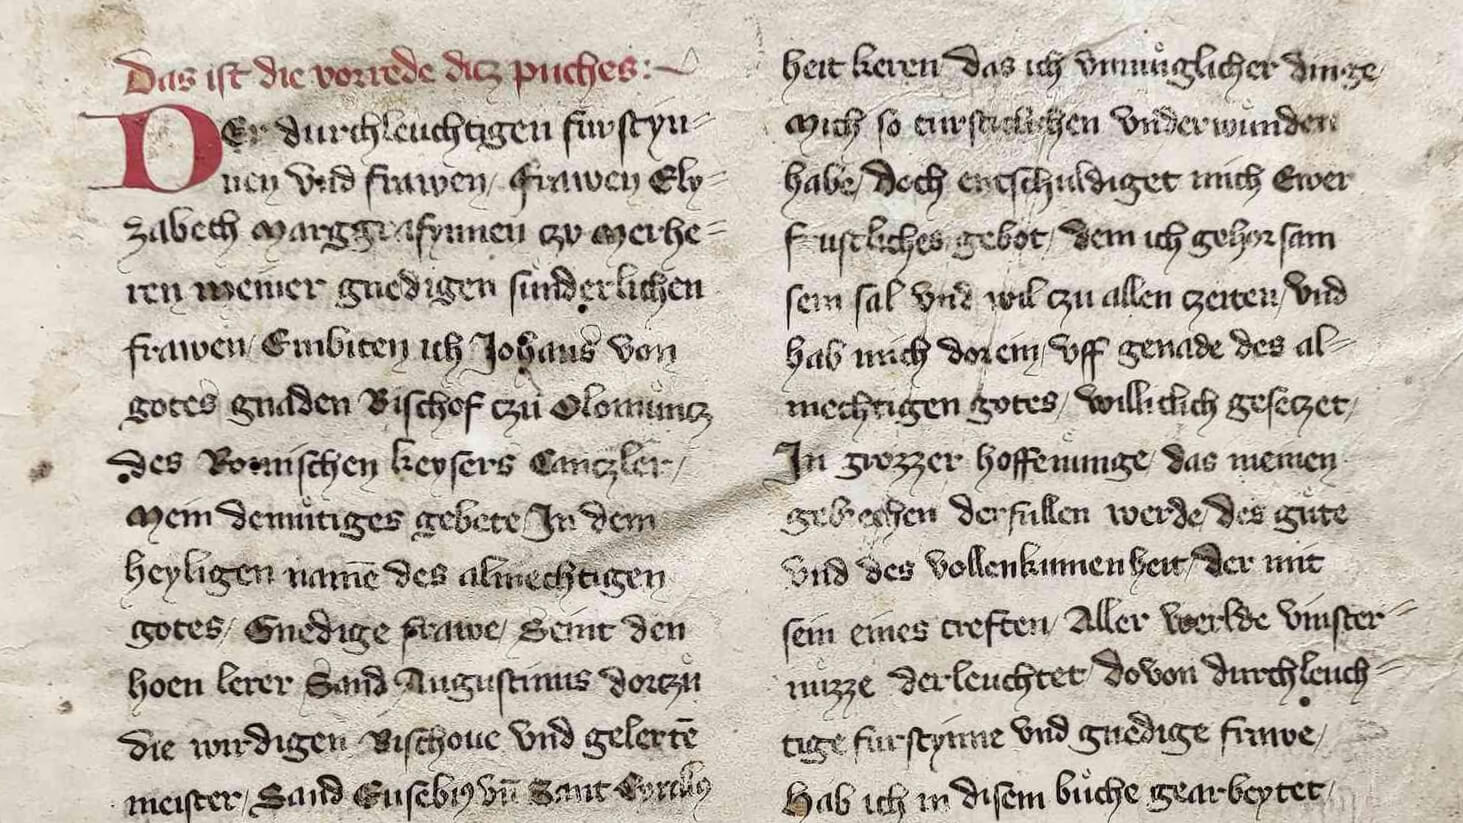 Das ist die vorrede dicz puches:~
DEr durchleuchtigen furstyn=
nen vnd frawen/ frawen Ely=
zabeth Marggrafynnen czv Merhe=
ren meiner gnedigen sunderlichen
frawen/ Embiten ich Johans von
gotes gnaden Bischof czu Olomuncz
des Romischen keysers Canczler/
Mein demutiges gebete/ In dem
heyligen namē des almechtigen
gotes/ Gnedige frawe/ Seint den
hoen lerer Sand Augustinus dorczu
die wirdigen Bischoue vnd gelertē
meister/ Sand Eusebius vn̄ Sant Cyrillus
heit keren das ich vnmuglicher dinge/
Mich so turstiklichen vnderwunden
habe/ Doch entschuldiget mich Ewer
furstliches gebot/ dem ich gehorsam
sein sal vnd wil czu allen czeiten/ vnd
hab mich dorein/ vff genade des al=
mechtigen gotes/ williclich geseczet/
In grozzer hoffenunge/ das meinen
gebrechen derfullen werde/ des gute
vnd des vollenkumenheit/ der mit
sein eines creften/ Aller werlde vinster=
nuzze derleuchtet/ Dovon durchleuch=
tige furstynne vnd gnedige frawe/
Hab ich in disem buche gearbeytet/